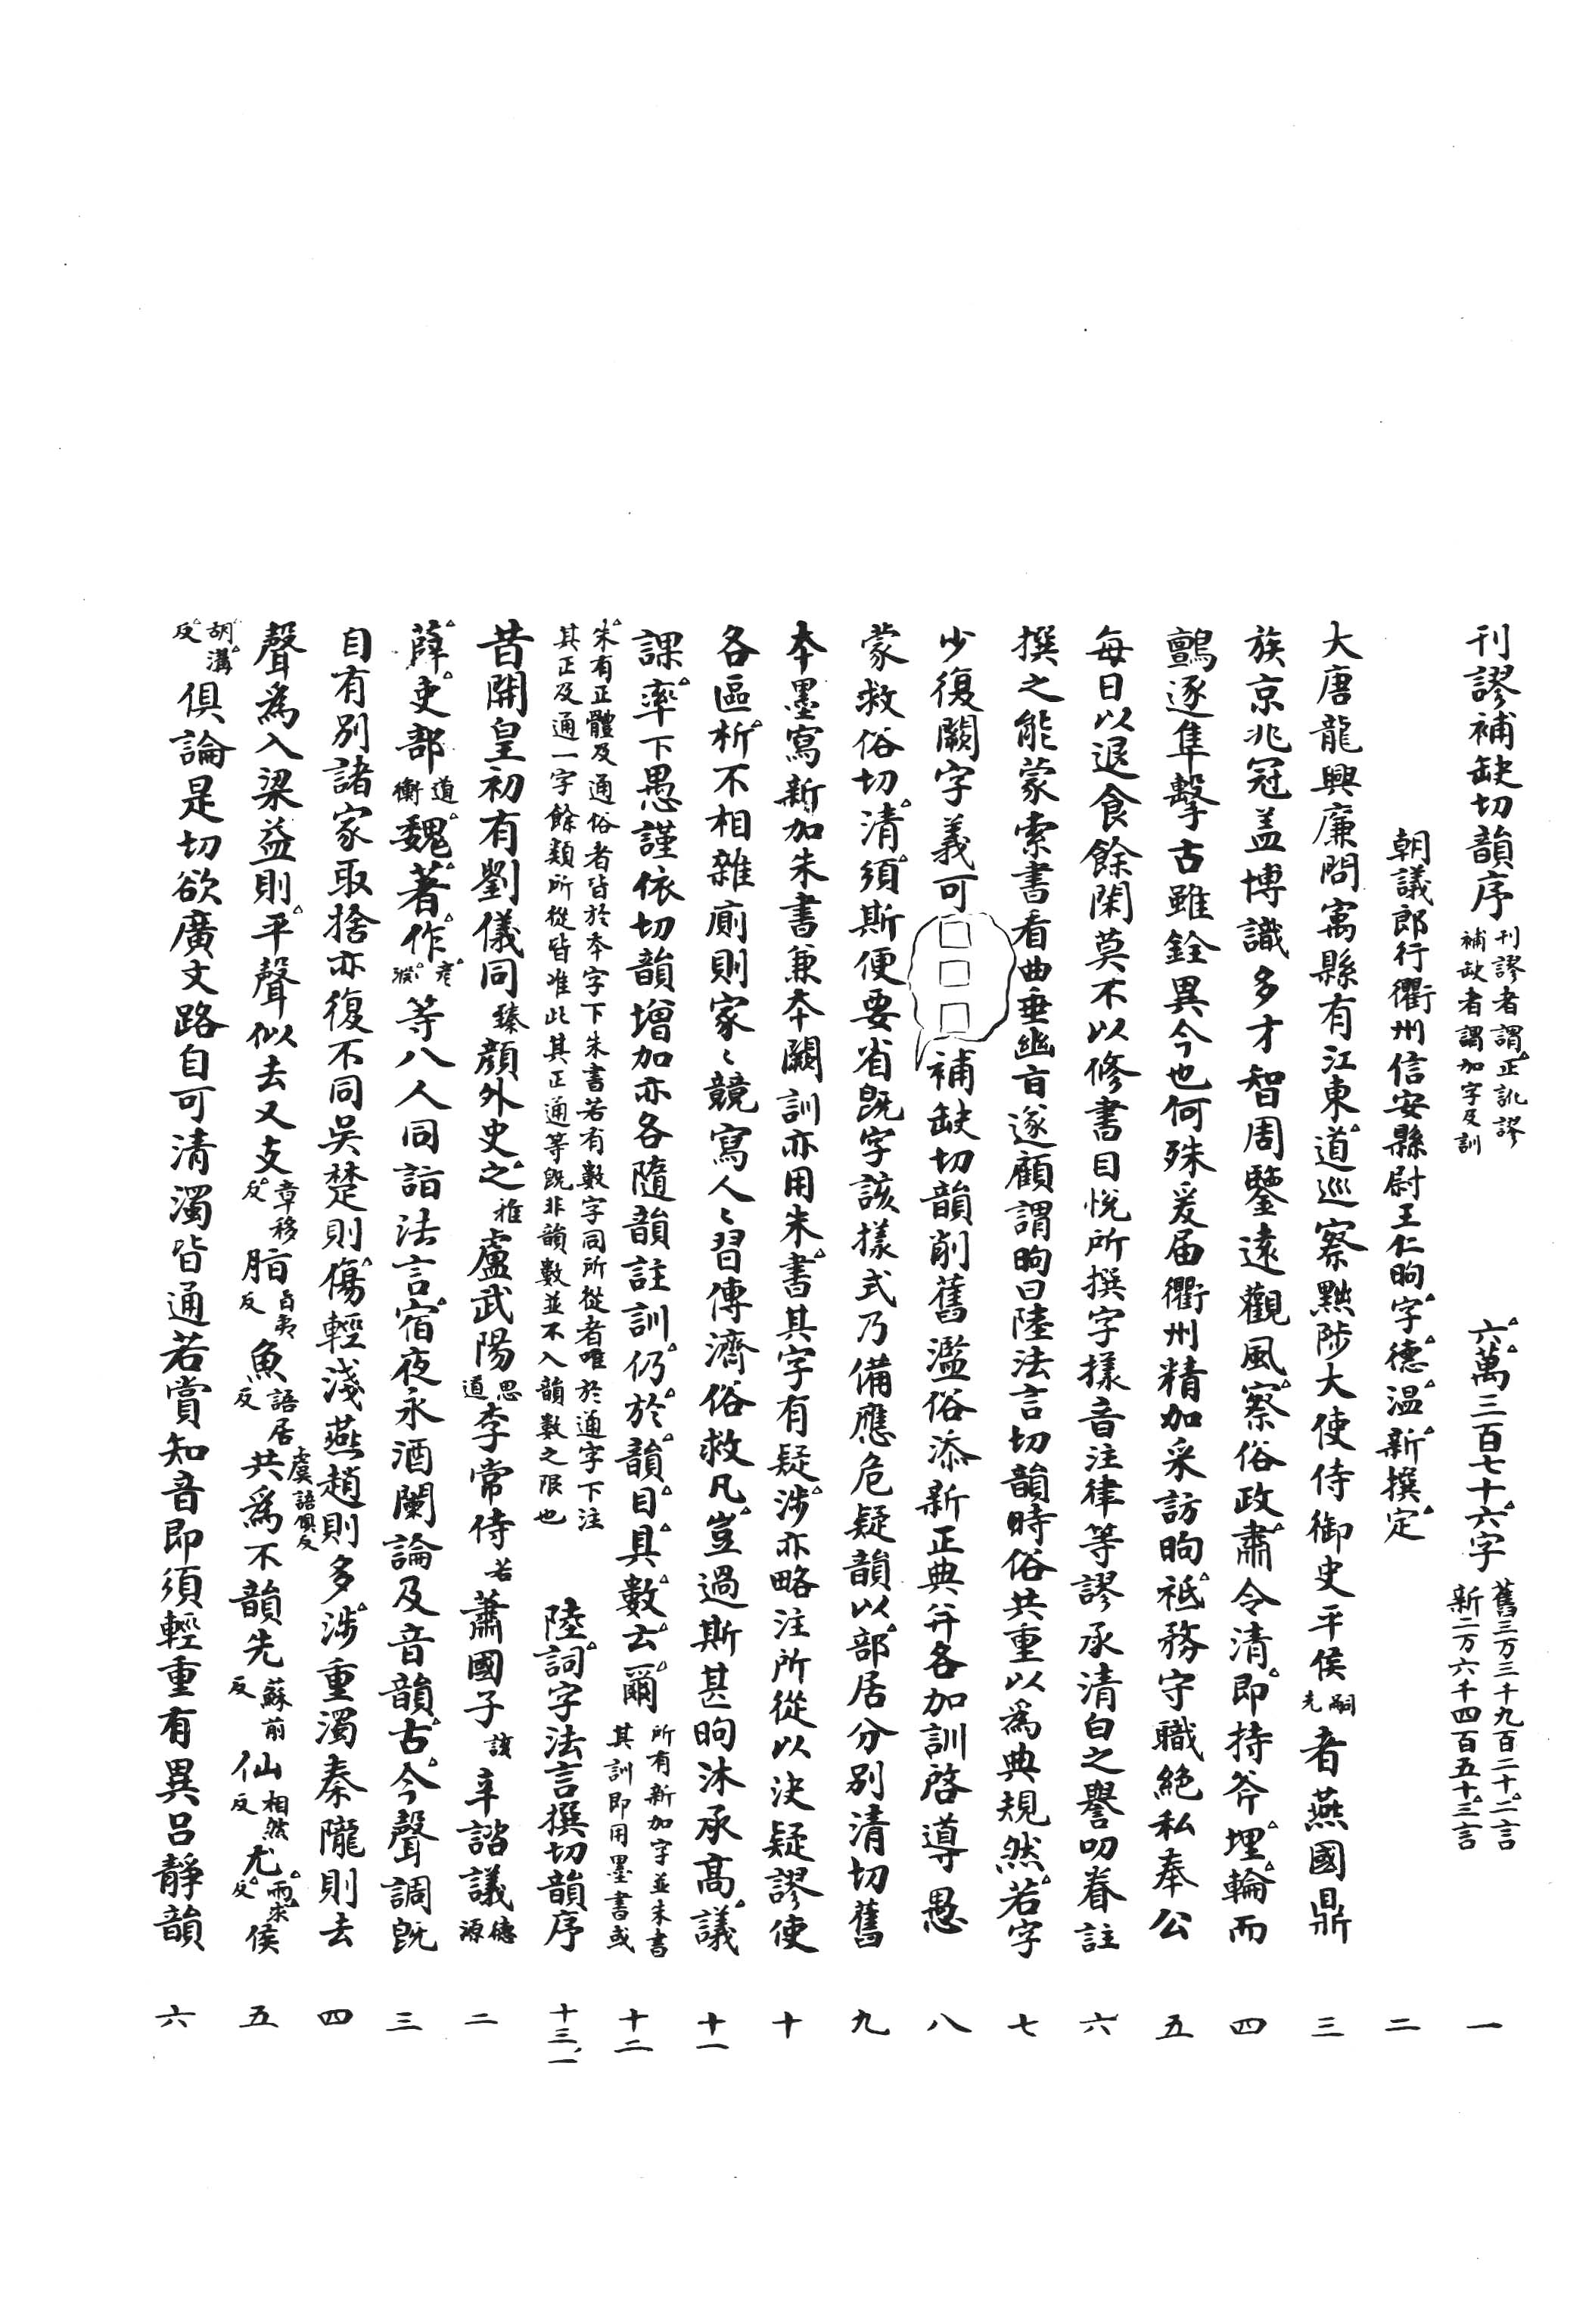 刊謬補缺切韻序刊謬者謂正訛謬補缺者謂加字及訓 六萬三百七十六字舊三万三千九百二十二言新二万六千四百五十三言 一
朝議郎行衢州信安縣尉王仁昫字德温新撰定 二
大唐龍興廉問寓縣有江東道巡察黜陟大使侍御史平侯嗣先者燕國鼎 三
族京兆冠盖博識多才智周鑒遠觀風察俗政肅令清即持斧埋輪而 四
鸇逐隼擊古雖銓異今也何殊爰届衢州精加采訪昫祗務守職絶私奉公 五
每日以退食餘閑莫不以修書自悅所撰字樣音注律等謬承清白之譽叨眷註 六
撰之能蒙索書看曲垂幽旨遂顧謂昫曰陸法言切韻時俗共重以爲典規然若字 七
少復闕字義可□□□補缺切韻削舊濫俗添新正典并各加訓啓導愚 八
蒙救俗切清須斯便要省旣字該樣式乃備應危疑韻以部居分別清切舊 九
本墨寫新加朱書兼本闕訓亦用朱書其字有疑涉亦略注所從以決疑謬使 十
各區析不相雜廁則家〻競寫人〻習傳濟俗救凡豈過斯甚昫沐承高議 十一
課率下愚謹依切韻增加亦各隨韻註訓仍於韻目具數云爾所有新加字並朱書其訓即用墨書或 十二
朱有正體及通俗者皆於本字下朱書若有數字同所從者唯於通字下注其正及通一字餘類所從皆准此其正通等旣非韻數並不入韻數之限也 陸詞字法言撰切韻序 十三、一
昔開皇初有劉儀同臻顔外史之推盧武陽思道李常侍若蕭國子該辛諮議德源 二
薛吏部道衡魏著作彦淵等八人同詣法言宿夜永酒闌論及音韻古今聲調旣 三
自有別諸家取捨亦復不同吳楚則傷輕淺燕趙則多涉重濁秦隴則去 四
聲為入梁益則平聲似去又支章移反脂旨夷反魚語居反虞語俱反共為不韻先蘇前反仙相然反尤雨求反侯 五
胡溝反俱論是切欲廣文路自可清濁皆通若賞知音即須輕重有異呂靜韻 六